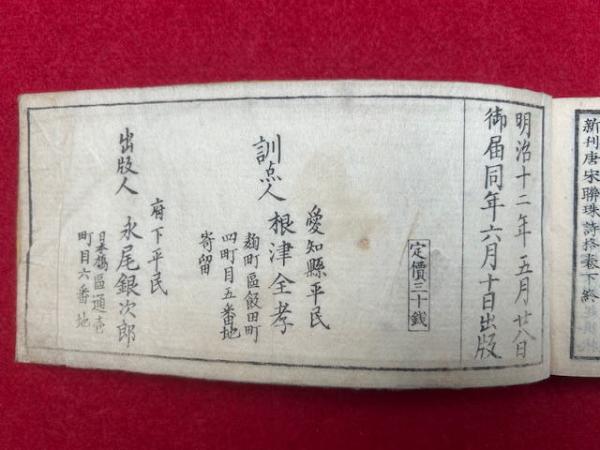 新刊唐宋聯珠詩格卷下終
明治十二年五月廿八日
御届同年六月十日出版
定價三十銭
愛知縣平民
訓点人 根津全孝
麹町區飯田町
四町目五番地
寄留
府下平民
出版人 永尾銀次郎
日本橋區通壱
町目六番地